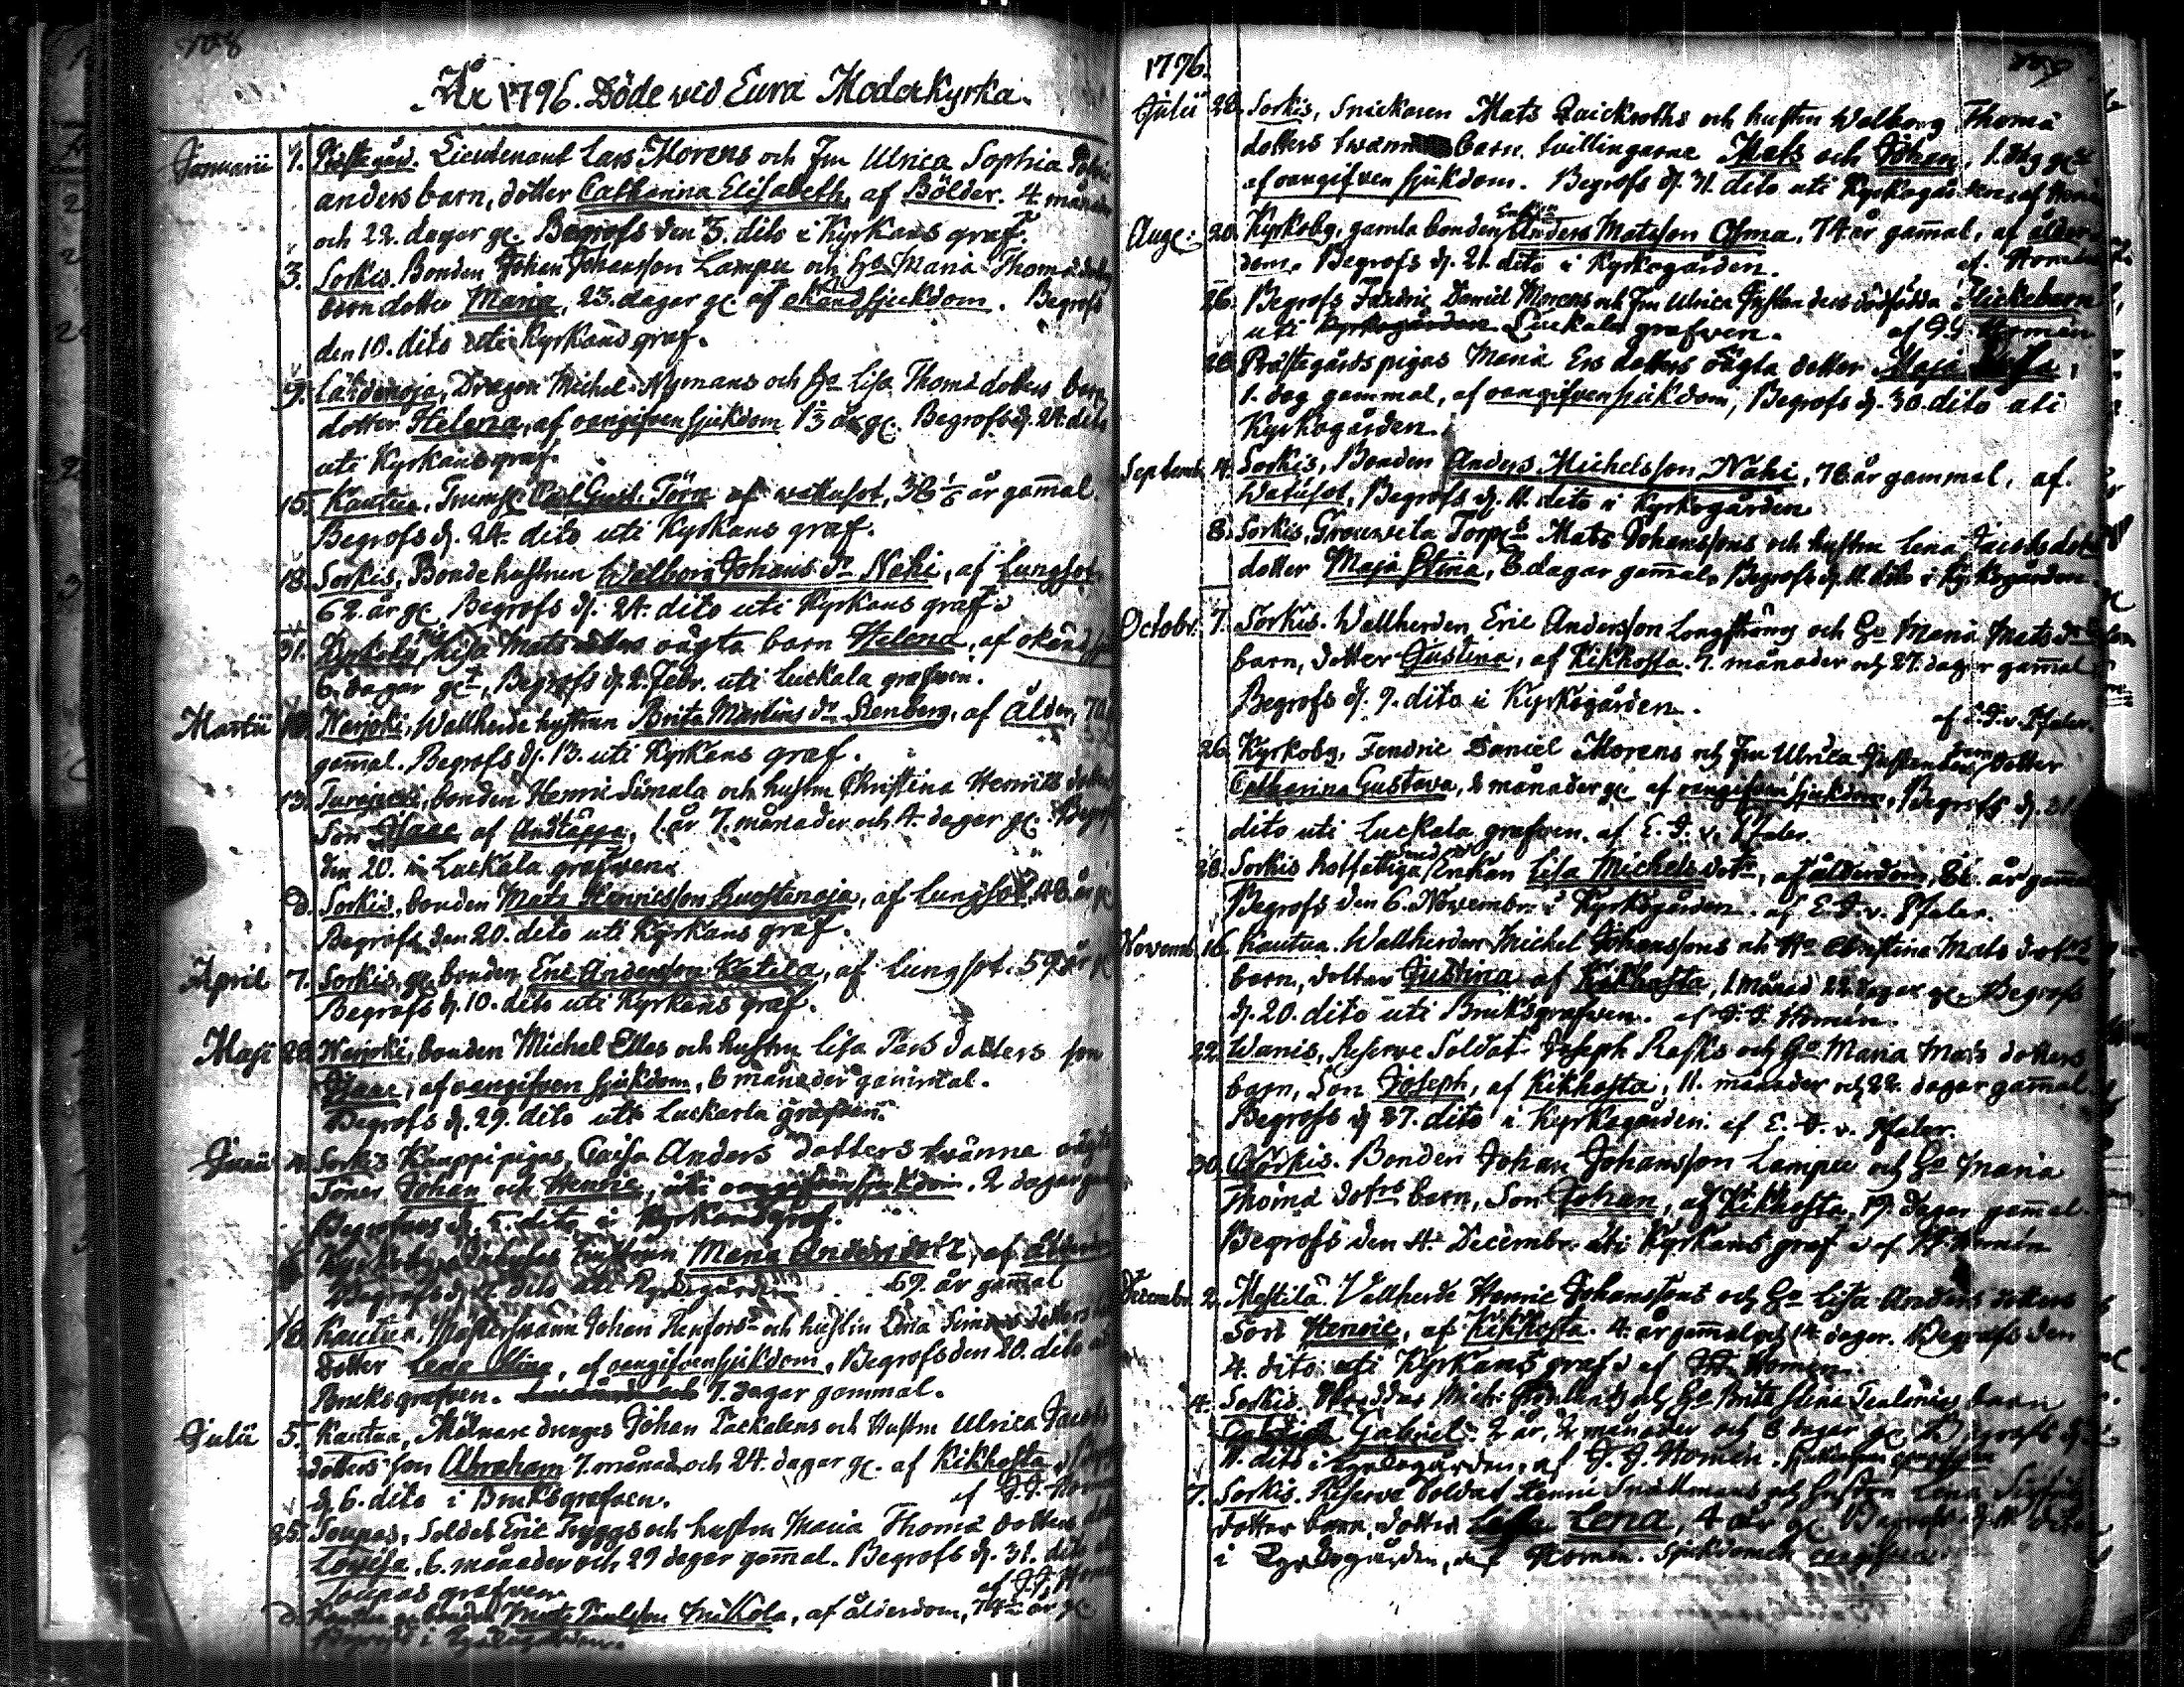 År 1796. Döde vid Eura Moderkyrka.
Januarii 1. Prästegård. Lieutenant Lars Morens och Fru Ulrica Sophia
anders barn, dotter Catharina Elisabeth, af Bölder. 4. månader
och 22. dagar gl. Begrofs den 3. dito i Kyrkans graf.
3. Sorkis. Bonden Johan Johansson Lampu och Ho Maria Thomæ dotters
barn dotter Maria, 23. dagar gl. af okänd sjukdom. Begrofs
den 10. dito uti Kyrkans graf.
9. Dragon Michel Nymans och Ho Lisa Thomæ dotters barn
dotter Helena, af oangifven sjukdom 1 2/3 år gl. Begrofs d. 24. dito
uti Kyrkans graf.
15. Kautua. Carl Gust. Törn af vattusot, 36 år gam̄al.
Begrofs d. 24. dito uti Kyrkans graf.
18. Sorkis, Bonde hustrun Walborg Johans dr Nähi, af Lungsot,
62. år gl. Begrofs d. 24. dito uti Kyrkans graf.
31. Kyrkoby, Lisa Mats oägta barn Helena, af okänd
6. dagar glt, Begrofs d. 2. Febr. uti Luckala grafven.
Martii 10. Wallherde hustrun Brita Martins dr Stenberg, af Ålder, 70.
gam̄al. Begrofs d. 13. uti Kyrkans graf.
13. Turajärvi, bonden Henric Simala och hustru Christina Henrics dotters
Son Isaac af Andtäppa, 1. år 7. månader och 4. dagar gl. Begrofs
den 20. i Luckala grafven.
d. Sorkis, bonden Mats Henricsson Luostenoja, af Lungsot, 40. år gl
Begrofs den 20. dito uti Kyrkans graf.
April 7. Sorkis, gl. bonden Eric Andersson Katila, af Lungsot. 59. år gl
Begrofs d. 10. dito uti Kyrkans graf.
Maji 20. Narjoki, bonden Michel Ellas och hustru Lisa Pers dotters son
Isaac, af oangifven sjukdom, 8 månader gammal.
Begrofs d. 29. dito uti Luckala grafven.
Junii 4. Sorkis Kauppi pigas Caisa Anders dotters tvänne oägta
Söner Johan och Henric, uti oangifven sjukdom. 2 dagar
Begrofvos d. 5. dito i Kyrkans graf.
hustrun Maria Anders dotr, af ålder
Begrofs d. dito uti Kyrkogården. 69. år gam̄al
16. Kautua, Mästersmann Johan Renfors och hustru Lena Simons dotters
Dotter Lena Stina, af oangifven sjukdom, Begrofs den 20. dito
Bruksgrafven. 7. dagar gammal.
Julii 5. Kautua, Mölnare drengs Johan Packalens och Hustru Ulrica Jacobs
dotters son Abraham 7. månader och 24. dagar gl. af Kikhosta
d. 6. dito i Bruksgrafven. af J.J. Homen
25. Soupas, Soldat Eric Tryggs och hustru Maria Thomæ dotters
Lovisa, 6. månader och 29 dagar gam̄al. Begrofs d. 31. dito
Soupas grafven. af J.J. Homen
d. Kautua gl. bonden Mats Paulsson Mikola, af ålderdom, 74 år gl
Begrofs i Kyrkogården.
1796.
Julii 28. Sorkis, Snickaren Mats Qvickroths och hustru Walborg Thomæ
dotters tvänne barn. tvillingarne Mats och Johan, 1. dag gl
af oangifven sjukdom. Begrofs d. 31. dito uti Kyrkogården af Homen
Aug: 20. Kyrkoby, gamla bonden Enkl. Anders Matsson Osma, 74 år gam̄al, af ålder
dom. Begrofs d. 21. dito i Kyrkogården. af Homen
26. Begrofs Fändric Daniel Morens och Fru Ulrica dess dödfödda Flickebarn
uti Kyrkogården Luckala grafven. af J.J. Homen
28. Prästegårds pigas Maria Ers dotters oägta dotter Maja Lisa,
1. dag gammal, af oangifven sjukdom, Begrofs d. 30. dito uti
Kyrkogården.
Septemb. 4. Sorkis, Bonden Anders Michelsson Nähi, 70. år gammal, af
Watusot, Begrofs d. 11. dito i Kyrkogården
8. Sorkis, Torp Mats Johanssons och hustru Lena Jacobs dotr
dotter Maja Stina, 8. dagar gam̄al. Begrofs d. 11. dito i Kyrkogården.
Octobr. 7. Sorkis. Wallherden Eric Andersson Långström och Ho Maria Mats dr
barn, dotter Justina, af Kikhosta. 7. månader och 27. dagar gam̄al
Begrofs d. 9. dito i Kyrkogården. af E.J.v. Pfaler.
26. Kyrkoby, Fendric Daniel Morens och Fru Ulrica dotter
Catharina Gustava, 2 månader gl. af oangifven sjukdom, Begrofs d. 31.
dito uti Luckala grafven. af E. J. v. Pfaler.
28. Sorkis Rotfattiga Enkan Lisa Michels dotr, af ålderdom, 81. år gam̄al
Begrofs den 6. Novembr. i Kyrkogården. af E. J. v. Pfaler.
Novemb. 16. Kautua. Wallherdens Michel Johanssons och Ho Christina Mats dotrs
barn, dotter Justina af Kikhosta, 1 månad 22 dagar gl. Begrofs
d. 20. dito uti Bruksgrafven. af J. J. Homen.
22. Wanis, Reserve Soldat Joseph Rasks och Ho Maria Mats dotters
barn, Son Joseph, af Kikhosta, 11. månader och 22. dagar gam̄al
Begrofs d. 27. dito i Kyrkogården. af E. J. v. Pfaler.
30. Sorkis. Bonden Johan Johansson Lampu och Ho Maria
Thomæ dotrs barn, Son Johan, af Kikhosta, 19. dagar gam̄al.
Begrofs den 4. Decembr. uti Kyrkans graf af J.J. Homén
Decembr. 2. Mestilä. Vallherde Henric Johanssons och Ho Lisa Anders dotters
Son Henric, af Kikhosta. 4. år gam̄al och 14 dagar. Begrofs den
4. dito uti Kyrkans graf af J.J. Homen.
4. Sorkis. och Ho Brita Stina barn
Gabriel. 2 år, 2 månader och 8 dagar gl. Begrofs d.
11. dito i Kyrkogården, af J. J. Homén.
7. Sorkis. Reserve Soldat Henric Snällmans och hustru Lena
dotter barn, dotter Lena, 4 år gl Begrofs d. 11. dito
i Kyrkogården, af Homén. Sjukdomen oangifven